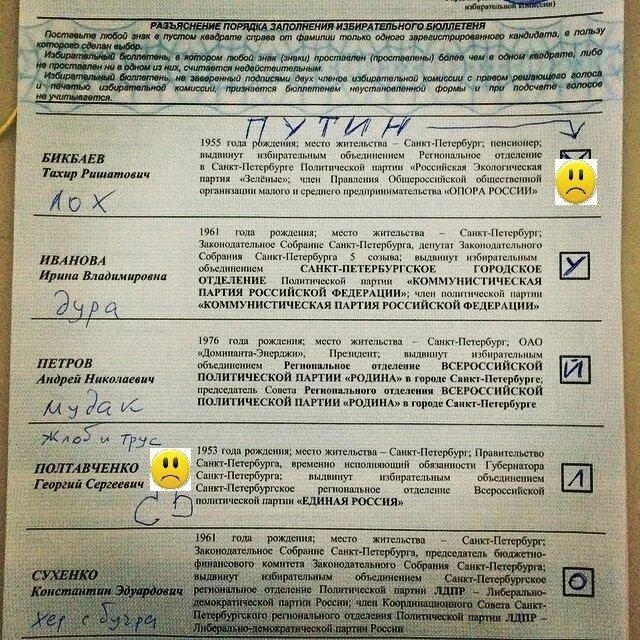 избирательной комиссии)
РАЗЪЯСНЕНИЕ ПОРЯДКА ЗАПОЛНЕНИЯ ИЗБИРАТЕЛЬНОГО БЮЛЛЕТЕНЯ
Поставьте любой знак в пустом квадрате справа от фамилии только одного зарегистрированного кандидата, в пользу
которого сделан выбор.
Избирательный бюллетень, в котором любой знак (знаки) проставлен (проставлены) более чем в одном квадрате, либо
не проставлен ни в одном из них, считается недействительным.
Избирательный бюллетень, не заверенный подписями двух членов избирательной комиссии с правом решающего голоса
и печатью избирательной комиссии, признается бюллетенем неустановленной формы и при подсчете голосов
не учитывается.
ПУТИН
БИКБАЕВ
Тахир Ришатович
ЛОХ
1955 года рождения; место жительства – Санкт-Петербург; пенсионер;
выдвинут избирательным объединением Региональное отделение
в Санкт-Петербурге Политической партии «Российская Экологическая
партия «Зелёные»; член Правления Общероссийской общественной
организации малого и среднего предпринимательства «ОПОРА РОССИИ»
ИВАНОВА
Ирина Владимировна
дура
1961 года рождения; место жительства – Санкт-Петербург;
Законодательное Собрание Санкт-Петербурга, депутат Законодательного
Собрания Санкт-Петербурга 5 созыва; выдвинут избирательным
объединением САНКТ-ПЕТЕРБУРГСКОЕ ГОРОДСКОЕ
ОТДЕЛЕНИЕ Политической партии «КОММУНИСТИЧЕСКАЯ
ПАРТИЯ РОССИЙСКОЙ ФЕДЕРАЦИИ»; член политической партии
«КОММУНИСТИЧЕСКАЯ ПАРТИЯ РОССИЙСКОЙ ФЕДЕРАЦИИ»
У
ПЕТРОВ
Андрей Николаевич
мудак
1976 года рождения; место жительства – Санкт-Петербург; ОАО
«Доминанта-Энерджи», Президент; выдвинут избирательным
объединением Региональное отделение ВСЕРОССИЙСКОЙ
ПОЛИТИЧЕСКОЙ ПАРТИИ «РОДИНА» в городе Санкт-Петербурге;
председатель Совета Регионального отделения ВСЕРОССИЙСКОЙ
ПОЛИТИЧЕСКОЙ ПАРТИИ «РОДИНА» в городе Санкт-Петербурге
Й
жлоб и трус
ПОЛТАВЧЕНКО
Георгий Сергеевич
1953 года рождения; место жительства – Санкт-Петербург; Правительство
Санкт-Петербурга, временно исполняющий обязанности Губернатора
Санкт-Петербурга; выдвинут избирательным объединением
Санкт-Петербургское региональное отделение Всероссийской
политической партии «ЕДИНАЯ РОССИЯ»
Л
СУХЕНКО
Константин Эдуардович
хер с бугра
1961 года рождения; место жительства – Санкт-Петербург;
Законодательное Собрание Санкт-Петербурга, председатель бюджетно-
финансового комитета Законодательного Собрания Санкт-Петербурга;
выдвинут избирательным объединением Санкт-Петербургское
региональное отделение Политической партии ЛДПР – Либерально-
демократической партии России; член Координационного Совета Санкт-
Петербургского регионального отделения Политической партии ЛДПР
– Либерально-демократической партии России
О